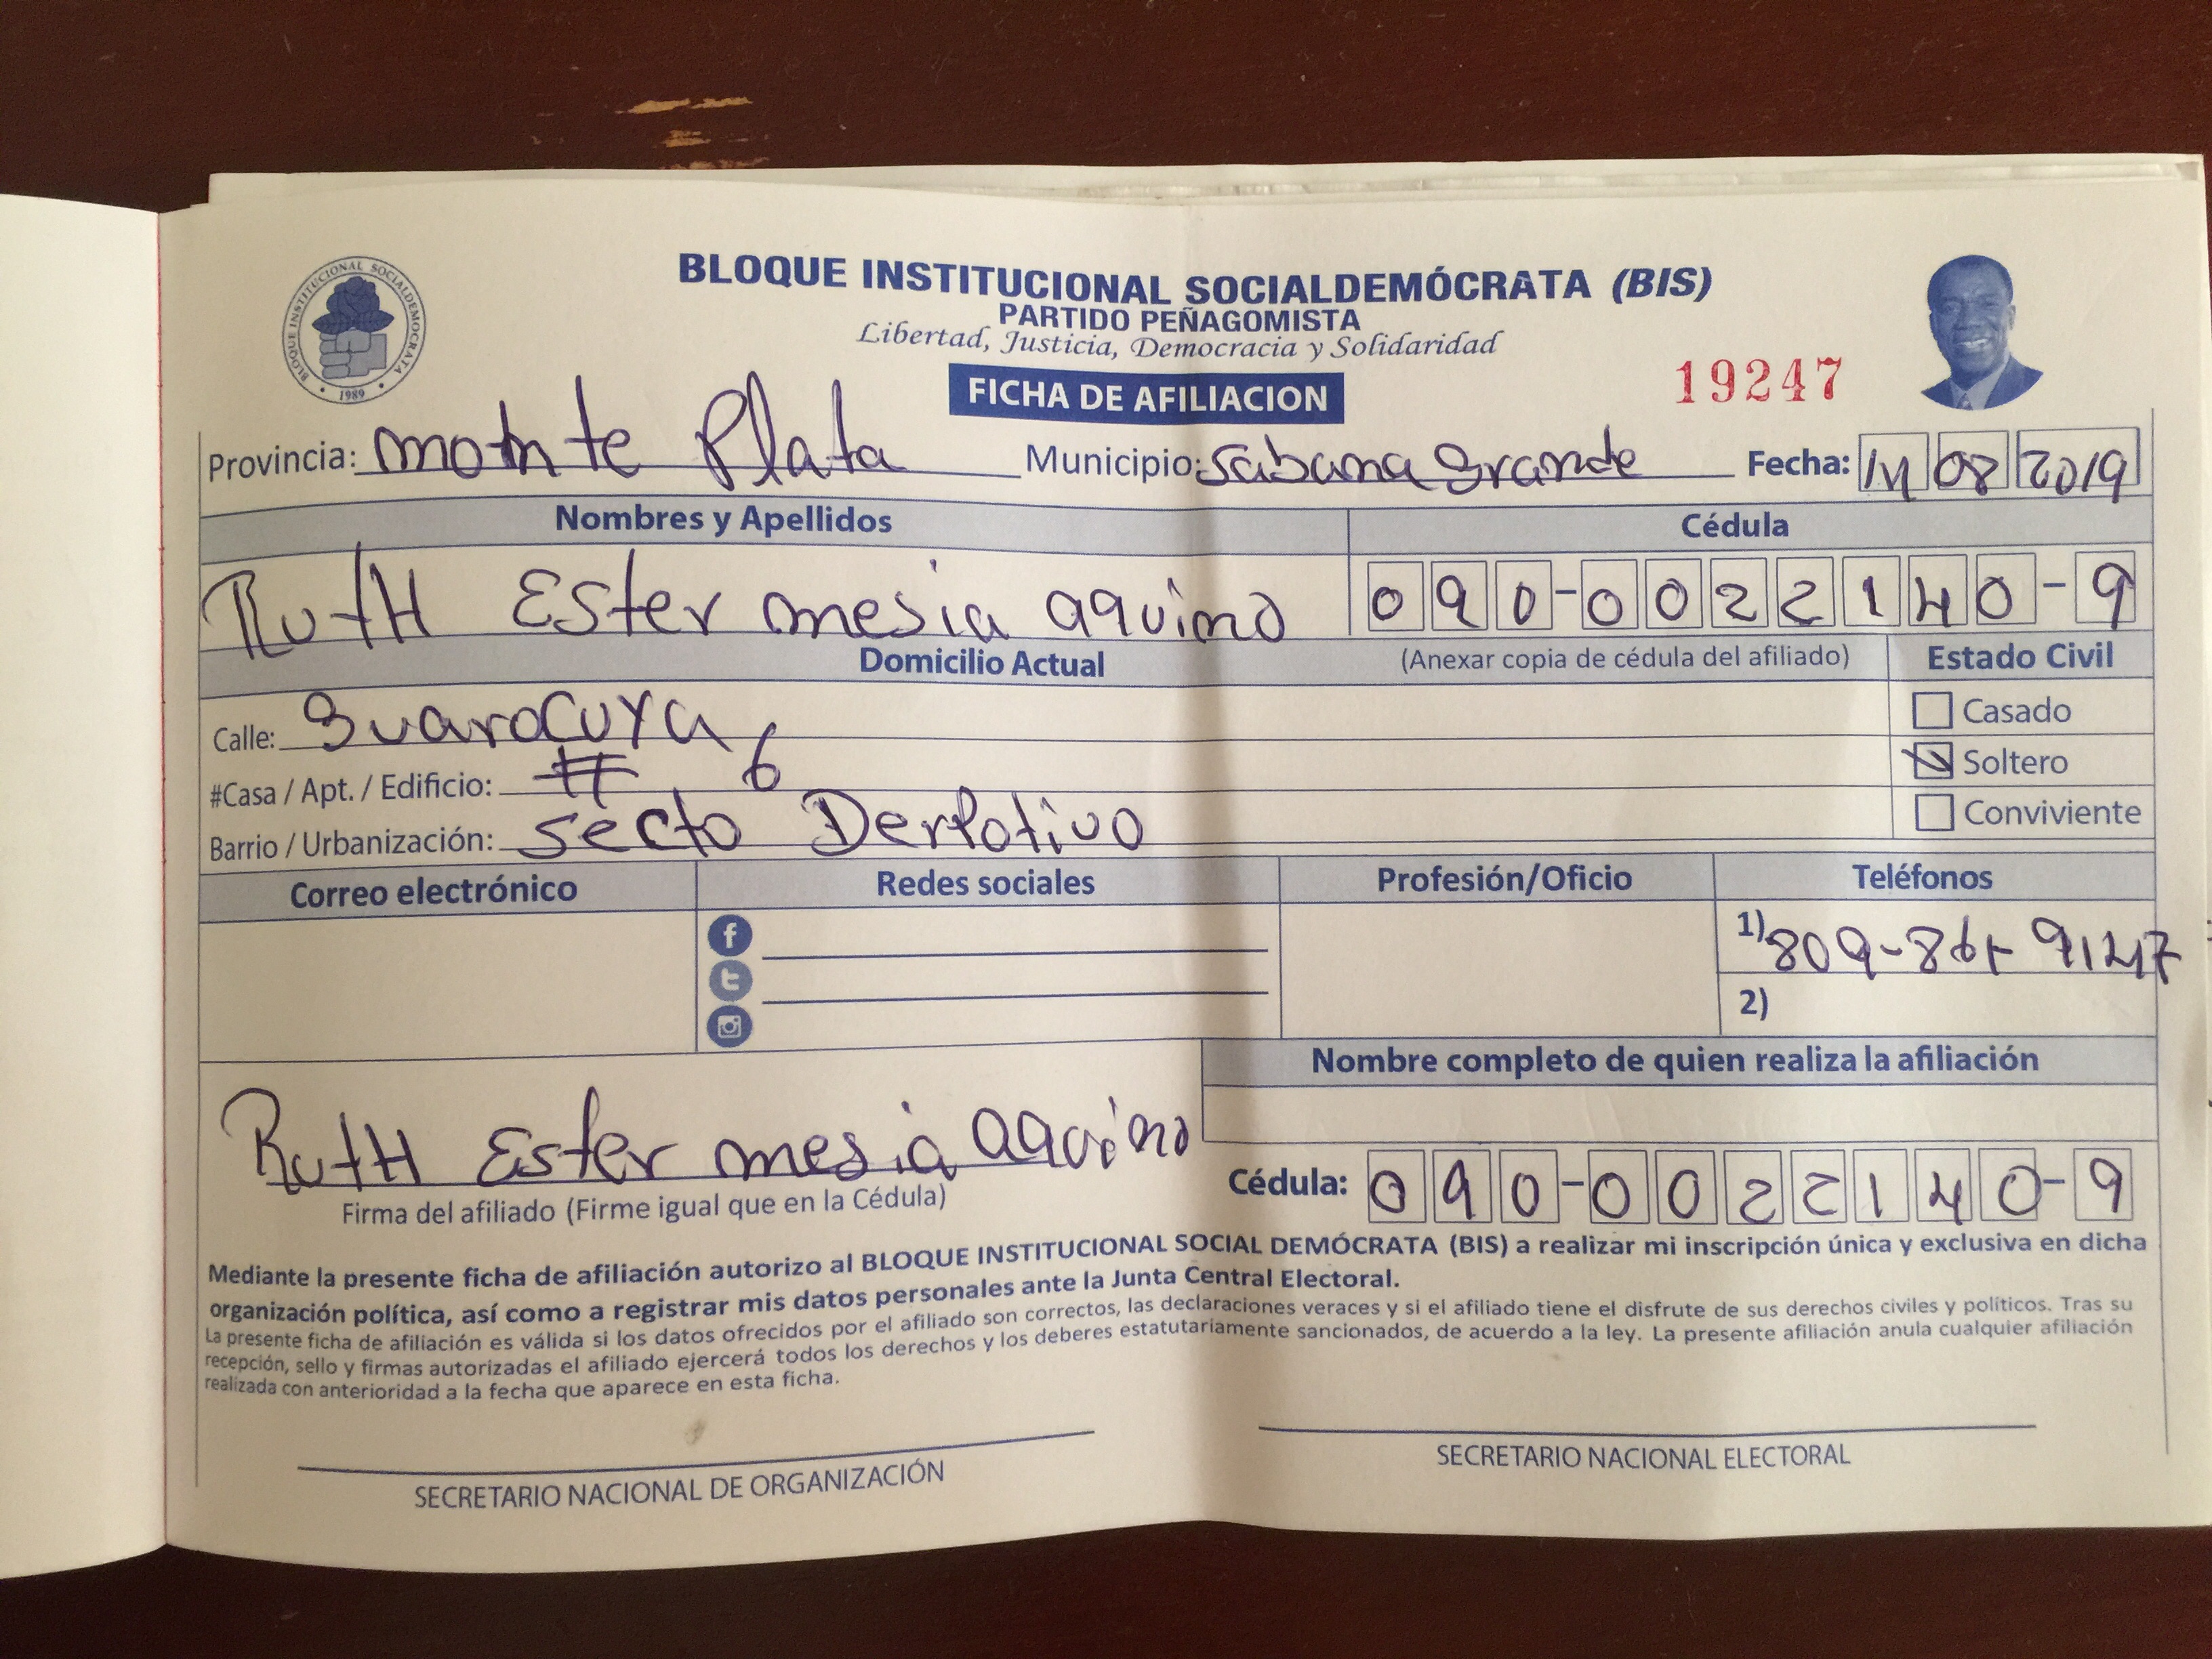 BLOQUE INSTITUCIONAL SOCIALDEMOCRATA
1989
BLOQUE INSTITUCIONAL SOCIALDEMÓCRATA (BIS)
PARTIDO PEÑAGOMISTA
Libertad, Justicia, Democracia y Solidaridad
FICHA DE AFILIACION
19247
Provincia: monte Plata Municipio: Sabana grande Fecha: 14 08 2019
Nombres y Apellidos Cédula
RutH Ester mesia aquino 090-0022140-9
Domicilio Actual (Anexar copia de cédula del afiliado) Estado Civil
Calle: guarocuya Casado
#Casa / Apt. / Edificio: # 6 Soltero
Barrio / Urbanización: secto Derpotivo Conviviente
Correo electrónico Redes sociales Profesión/Oficio Teléfonos
1) 809-861-9147
2)
Nombre completo de quien realiza la afiliación
RutH Ester mesia aquino
Firma del afiliado (Firme igual que en la Cédula) Cédula: 090-0022140-9
Mediante la presente ficha de afiliación autorizo al BLOQUE INSTITUCIONAL SOCIAL DEMÓCRATA (BIS) a realizar mi inscripción única y exclusiva en dicha
organización política, así como a registrar mis datos personales ante la Junta Central Electoral.
La presente ficha de afiliación es válida si los datos ofrecidos por el afiliado son correctos, las declaraciones veraces y si el afiliado tiene el disfrute de sus derechos civiles y políticos. Tras su
recepción, sello y firmas autorizadas el afiliado ejercerá todos los derechos y los deberes estatutariamente sancionados, de acuerdo a la ley. La presente afiliación anula cualquier afiliación
realizada con anterioridad a la fecha que aparece en esta ficha.
SECRETARIO NACIONAL DE ORGANIZACIÓN SECRETARIO NACIONAL ELECTORAL